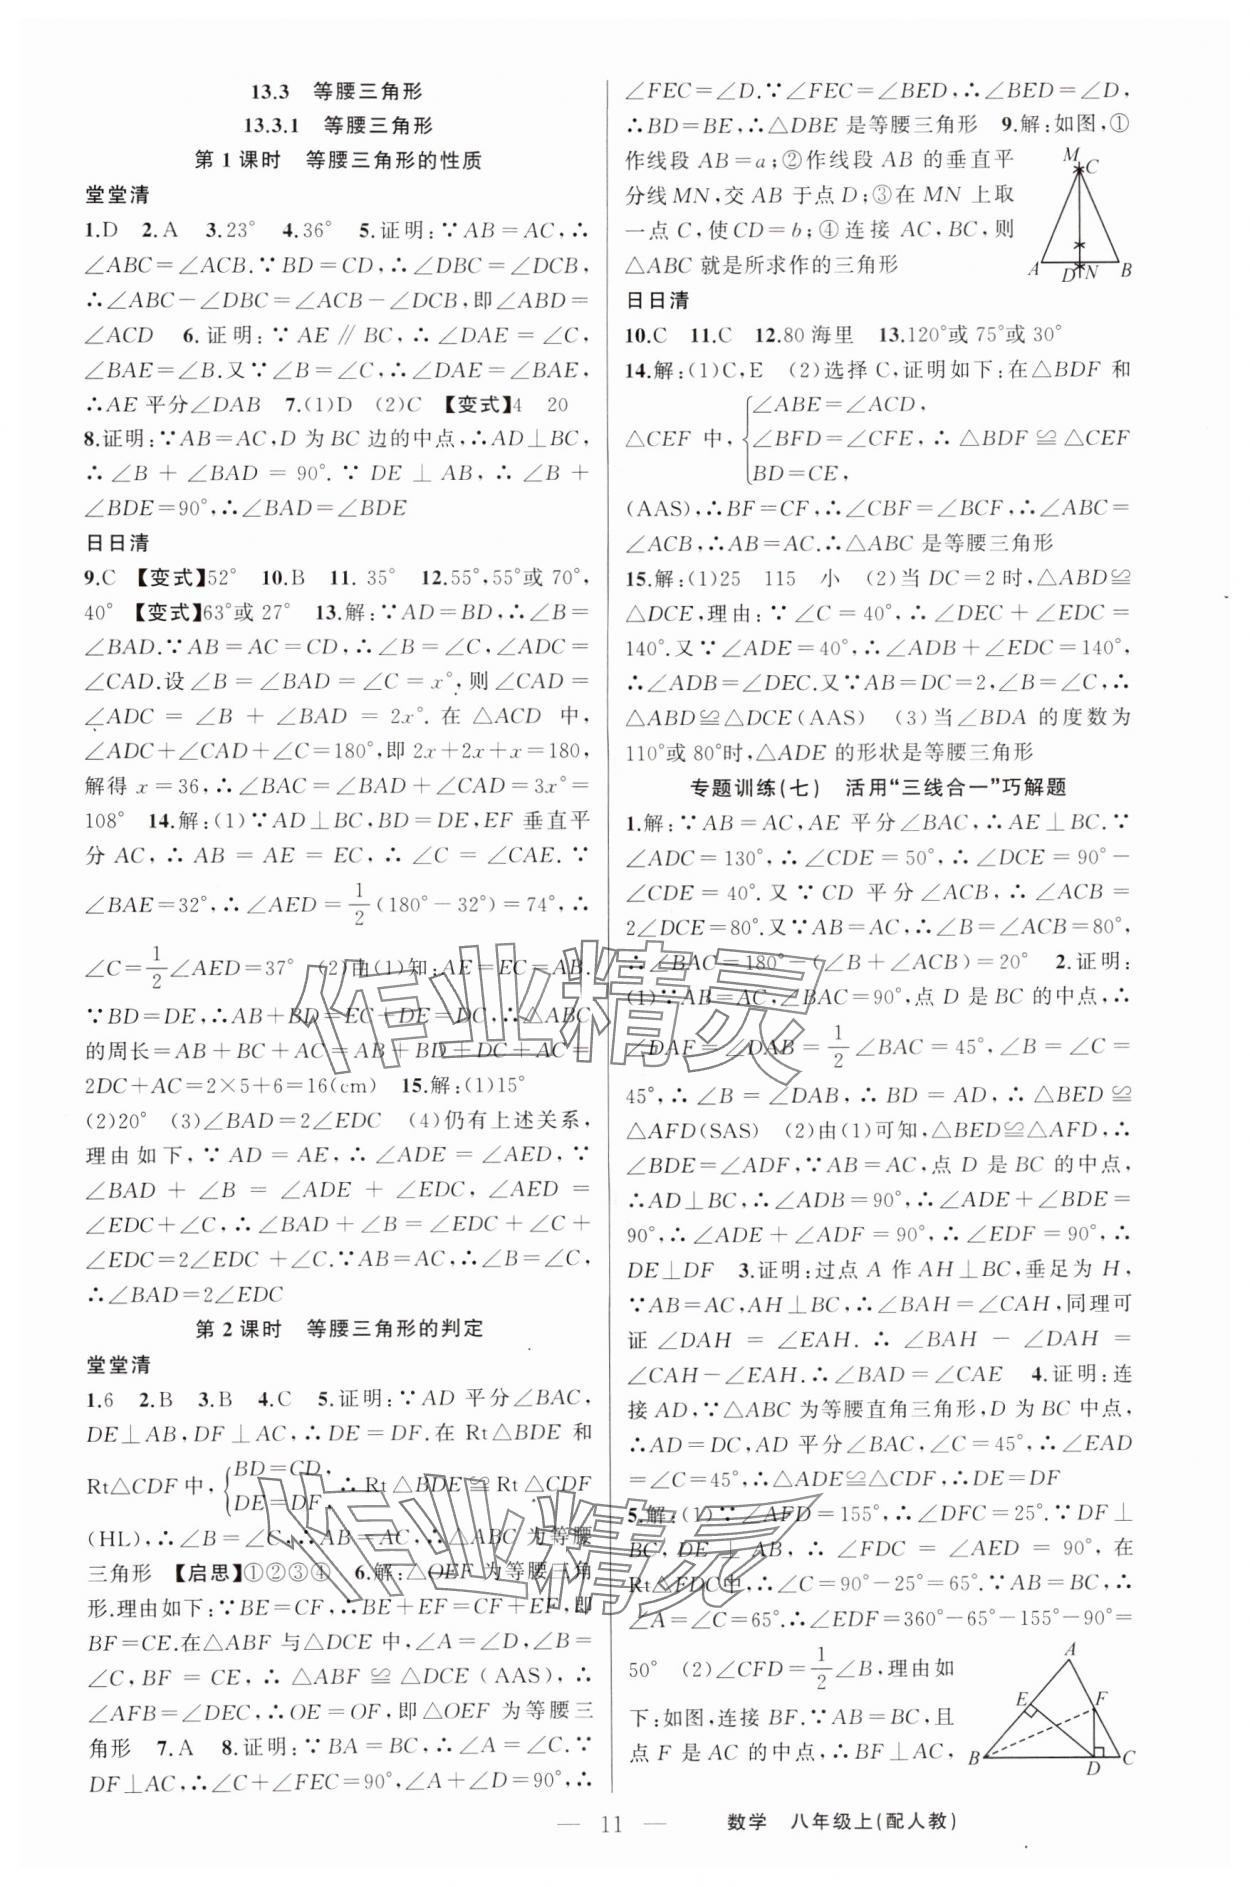 13.3　等腰三角形
13.3.1　等腰三角形
第 1 课时　等腰三角形的性质
堂堂清
1.D　2.A　3.23°　4.36°　5.证明:∵AB=AC,∴
∠ABC=∠ACB.∵BD=CD,∴∠DBC=∠DCB,
∴∠ABC-∠DBC=∠ACB-∠DCB,即∠ABD=
∠ACD　6.证明:∵AE∥BC,∴∠DAE=∠C,
∠BAE=∠B.又∵∠B=∠C,∴∠DAE=∠BAE,
∴AE 平分∠DAB　7.(1)D　(2)C　【变式】4　20
8.证明:∵AB=AC,D 为 BC 边的中点,∴AD⊥BC,
∴∠B+∠BAD=90°.∵DE⊥AB,∴∠B+
∠BDE=90°,∴∠BAD=∠BDE
日日清
9.C　【变式】52°　10.B　11. 35°　12.55°,55°或 70°,
40°　【变式】63°或 27°　13.解:∵AD=BD,∴∠B=
∠BAD.∵AB=AC=CD,∴∠B=∠C,∠ADC=
∠CAD.设∠B=∠BAD=∠C=x°,则∠CAD=
∠ADC=∠B+∠BAD=2x°.在△ACD 中,
∠ADC+∠CAD+∠C=180°,即 2x+2x+x=180,
解得 x=36,∴∠BAC=∠BAD+∠CAD=3x°=
108°　14.解:(1)∵AD⊥BC,BD=DE,EF 垂直平
分 AC,∴AB=AE=EC,∴∠C=∠CAE.∵
∠BAE=32°,∴∠AED=1/2(180°-32°)=74°,∴
∠C=1/2∠AED=37°　(2)由(1)知:AE=EC=AB.
∵BD=DE,∴AB+BD=EC+DE=DC,∴△ABC
的周长=AB+BC+AC=AB+BD+DC+AC=
2DC+AC=2×5+6=16(cm)　15.解:(1)15°
(2)20°　(3)∠BAD=2∠EDC　(4)仍有上述关系,
理由如下,∵AD=AE,∴∠ADE=∠AED,∵
∠BAD+∠B=∠ADE+∠EDC,∠AED=
∠EDC+∠C,∴∠BAD+∠B=∠EDC+∠C+
∠EDC=2∠EDC+∠C.∵AB=AC,∴∠B=∠C,
∴∠BAD=2∠EDC
第 2 课时　等腰三角形的判定
堂堂清
1.6　2.B　3.B　4.C　5.证明:∵AD 平分∠BAC,
DE⊥AB,DF⊥AC,∴DE=DF.在 Rt△BDE 和
Rt△CDF 中,{BD=CD, DE=DF,∴Rt△BDE≌Rt△CDF
(HL),∴∠B=∠C,∴AB=AC,∴△ABC 为等腰
三角形　【启思】①②③④　6.解:△OEF 为等腰三角
形.理由如下:∵BE=CF,∴BE+EF=CF+EF,即
BF=CE.在△ABF 与△DCE 中,∠A=∠D,∠B=
∠C,BF=CE,∴△ABF≌△DCE(AAS),∴
∠AFB=∠DEC,∴OE=OF,即△OEF 为等腰三
角形　7.A　8.证明:∵BA=BC,∴∠A=∠C.∵
DF⊥AC,∴∠C+∠FEC=90°,∠A+∠D=90°,∴
∠FEC=∠D.∵∠FEC=∠BED,∴∠BED=∠D,
∴BD=BE,∴△DBE 是等腰三角形　9.解:如图,①
作线段 AB=a;②作线段 AB 的垂直平
分线MN,交 AB 于点 D;③在 MN 上取
一点 C,使CD=b;④连接 AC,BC,则
△ABC 就是所求作的三角形
M
C
A
D
N
B
日日清
10.C　11.C　12.80 海里　13.120°或 75°或 30°
14.解:(1)C,E　(2)选择 C,证明如下:在△BDF 和
△CEF 中,{∠ABE=∠ACD, ∠BFD=∠CFE, BD=CE,∴△BDF≌△CEF
(AAS),∴BF=CF,∴∠CBF=∠BCF,∴∠ABC=
∠ACB,∴AB=AC.∴△ABC 是等腰三角形
15.解:(1)25　115　小　(2)当 DC=2 时,△ABD≌
△DCE,理由:∵∠C=40°,∴∠DEC+∠EDC=
140°.又∵∠ADE=40°,∴∠ADB+∠EDC=140°,
∴∠ADB=∠DEC.又∵AB=DC=2,∠B=∠C,∴
△ABD≌△DCE(AAS)　(3)当∠BDA 的度数为
110°或 80°时,△ADE 的形状是等腰三角形
专题训练(七)　活用“三线合一”巧解题
1.解:∵AB=AC,AE 平分∠BAC,∴AE⊥BC.∵
∠ADC=130°,∴∠CDE=50°,∴∠DCE=90°-
∠CDE=40°.又∵CD 平分∠ACB,∴∠ACB=
2∠DCE=80°.又∵AB=AC,∴∠B=∠ACB=80°,
∴∠BAC=180°-(∠B+∠ACB)=20°　2.证明:
(1)∵AB=AC,∠BAC=90°,点 D 是 BC 的中点,∴
∠DAF=∠DAB=1/2∠BAC=45°,∠B=∠C=
45°,∴∠B=∠DAB,∴BD=AD,∴△BED≌
△AFD(SAS)　(2)由(1)可知,△BED≌△AFD,∴
∠BDE=∠ADF,∵AB=AC,点 D 是 BC 的中点,
∴AD⊥BC,∴∠ADB=90°,∴∠ADE+∠BDE=
90°,∴∠ADE+∠ADF=90°,∴∠EDF=90°,∴
DE⊥DF　3.证明:过点 A 作 AH⊥BC,垂足为 H,
∵AB=AC,AH⊥BC,∴∠BAH=∠CAH,同理可
证∠DAH=∠EAH.∴∠BAH-∠DAH=
∠CAH-∠EAH.∴∠BAD=∠CAE　4.证明:连
接 AD,∵△ABC 为等腰直角三角形,D 为 BC 中点,
∴AD=DC,AD 平分∠BAC,∠C=45°,∴∠EAD
=∠C=45°,∴△ADE≌△CDF,∴DE=DF
5.解:(1)∵∠AFD=155°,∴∠DFC=25°.∵DF⊥
BC,DE⊥AB,∴∠FDC=∠AED=90°,在
Rt△FDC中,∴∠C=90°-25°=65°.∵AB=BC,∴
∠A=∠C=65°,∴∠EDF=360°-65°-155°-90°=
50°　(2)∠CFD=1/2∠B,理由如
下:如图,连接 BF.∵AB=BC,且
点 F 是 AC 的中点,∴BF⊥AC,
A
E
F
B
D
C
作业精灵
作业精灵
— 11 —　数学　八年级上(配人教)